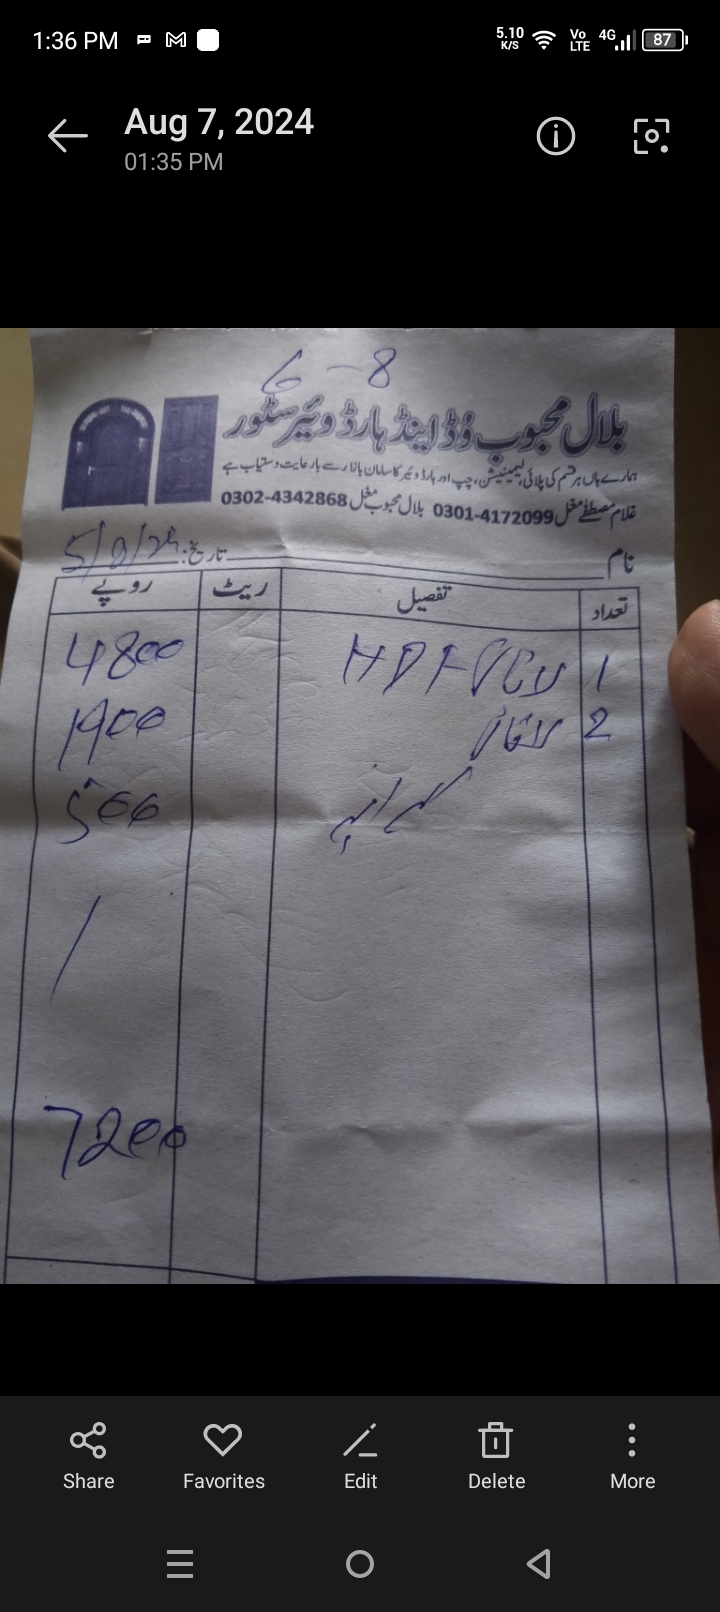 1:36 PM 5.10 K/S Vo LTE 4G 87
Aug 7, 2024
01:35 PM
6-8
بلال محبوب وُڈ اینڈ ہارڈ ویئر سٹور
ہمارے ہاں ہر قسم کی پلائی، لیمینیشن، چپ اور ہارڈ وئیر کا سامان بازار سے بارعایت دستیاب ہے
غلام مصطفٰے مغل 0301-4172099 بلال محبوب مغل 0302-4342868
نام تاریخ: 5/8/24
تعداد تفصیل ریٹ روپے
1 HDF 4800
2 1900
کرایہ 500
7200
Share Favorites Edit Delete More